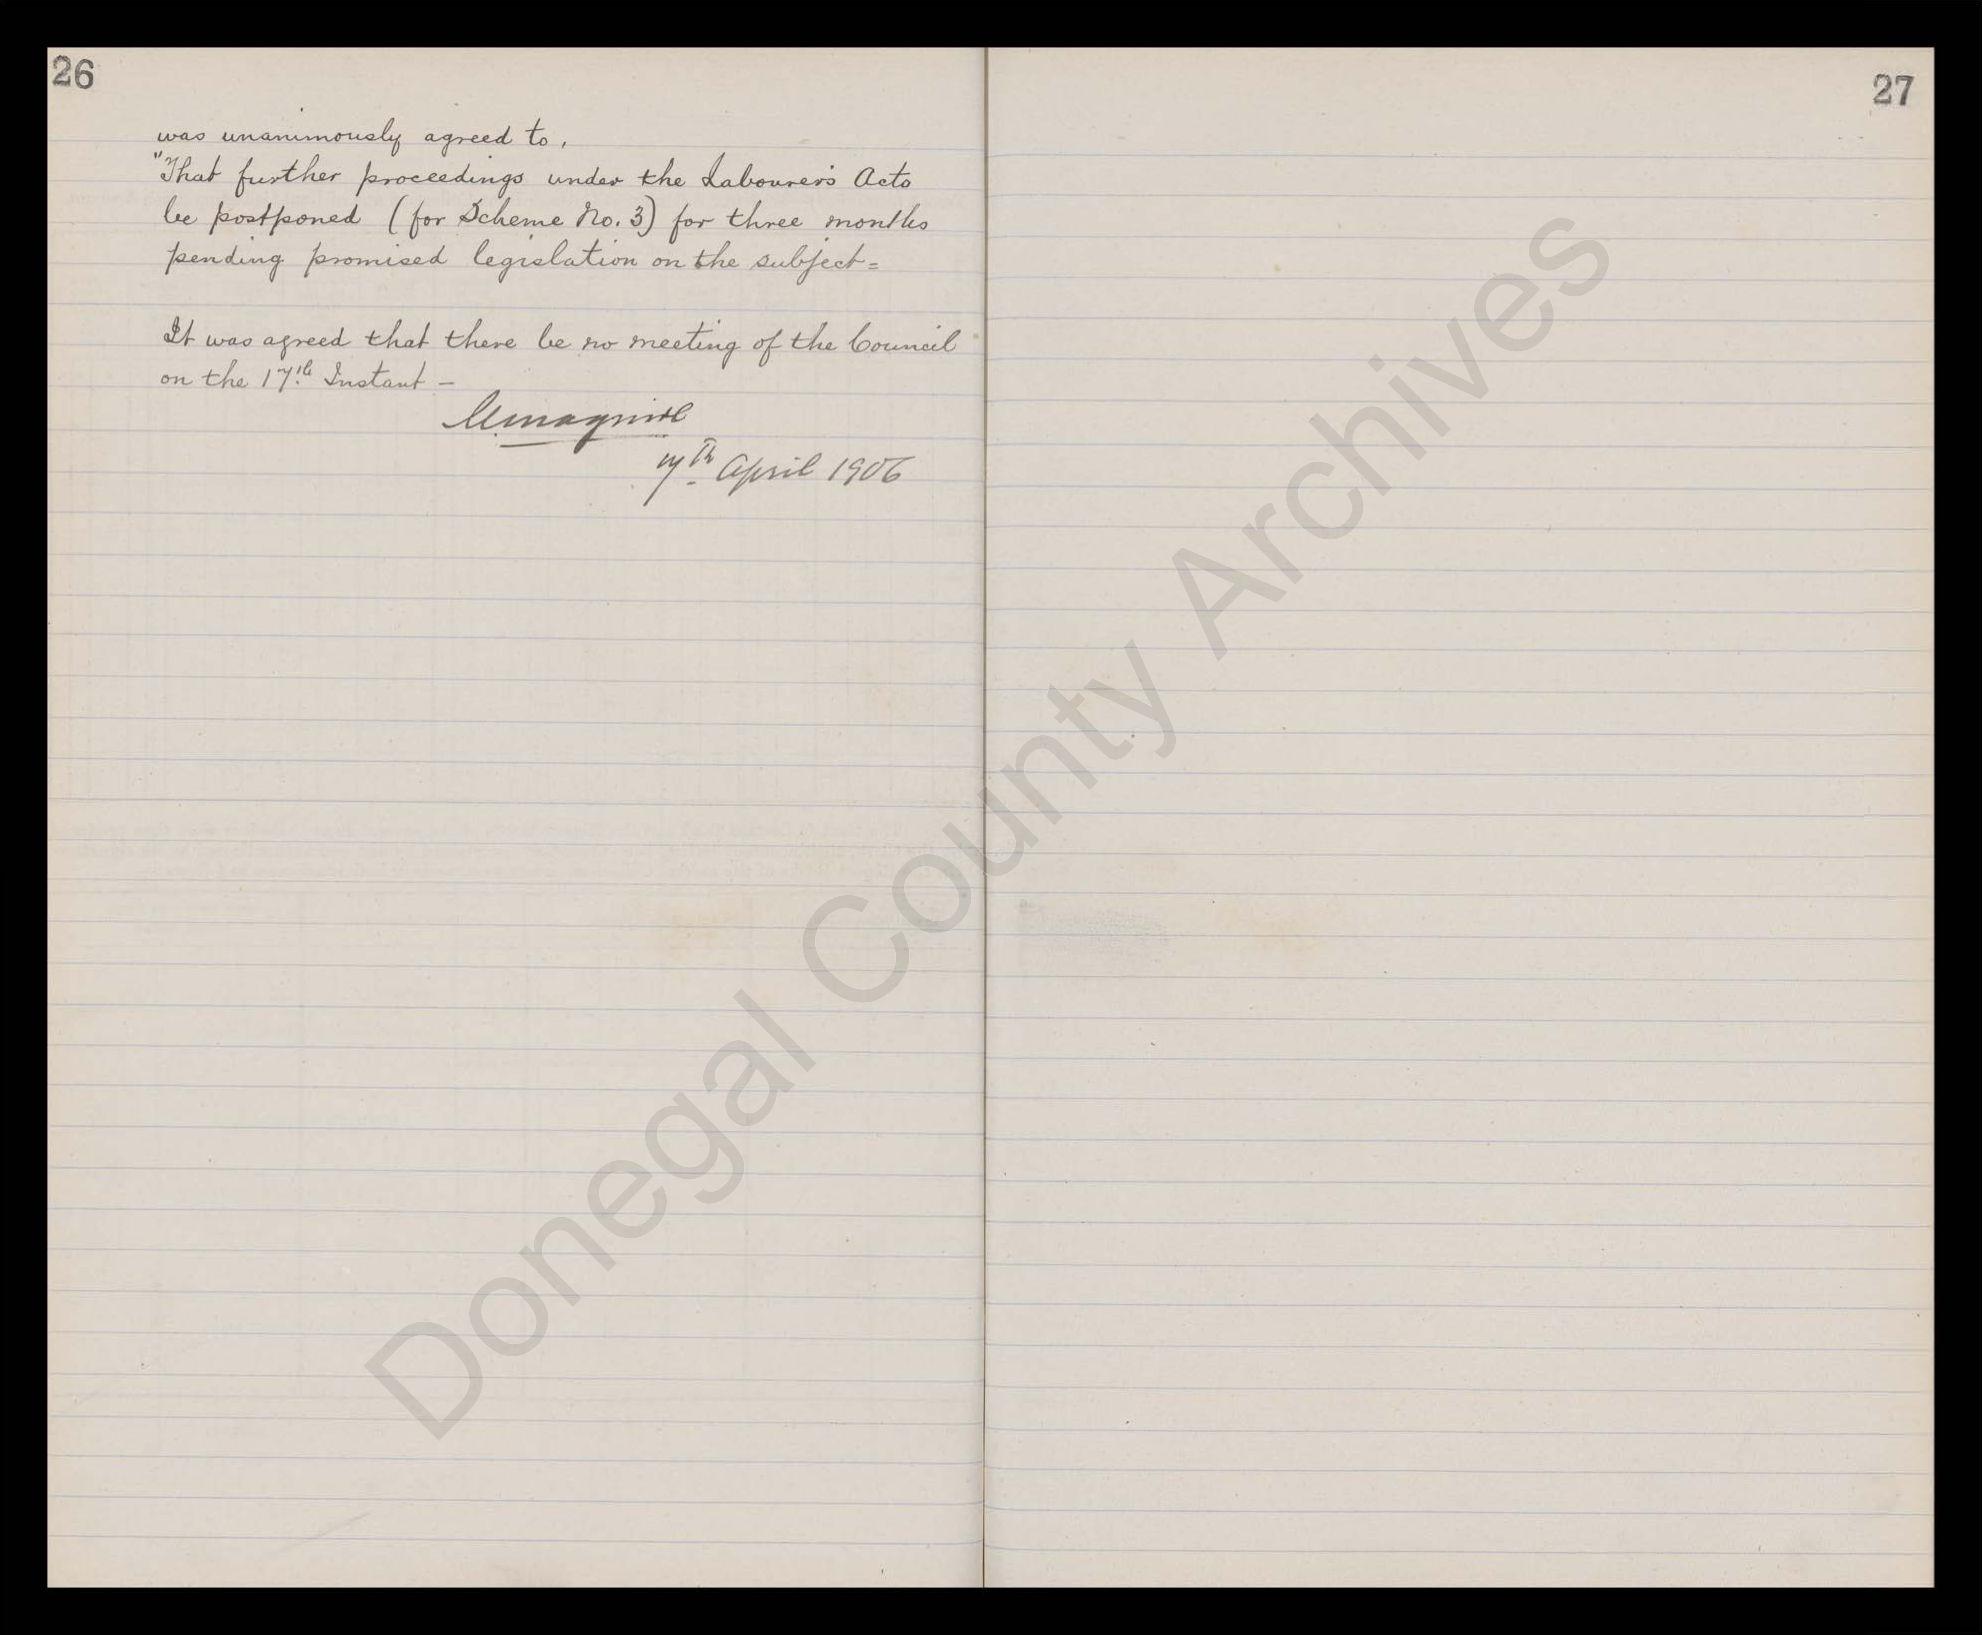 26
was unanimously agreed to,
"That further proceedings under the Labourer's Acts
be postponed (for Scheme No. 3) for three months
pending promised legislation on the subject =
It was agreed that there be no meeting of the Council
on the 17th Instant -
7th April 1906
27
Donegal County Archives